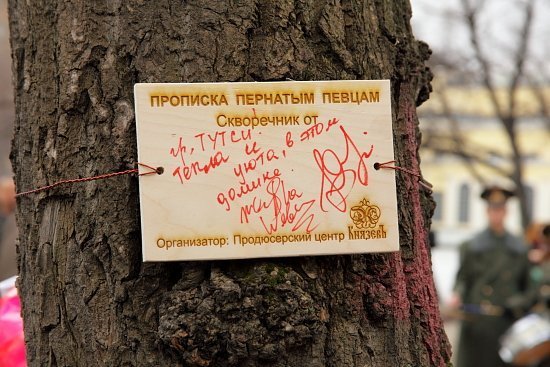 ПРОПИСКА ПЕРНАТЫМ ПЕВЦАМ
Скворечник от
гр. ТУТСИ!
Тепла и
уюта, в этом
домике.
Организатор: Продюсерский центр КНЯЗЕВЪ